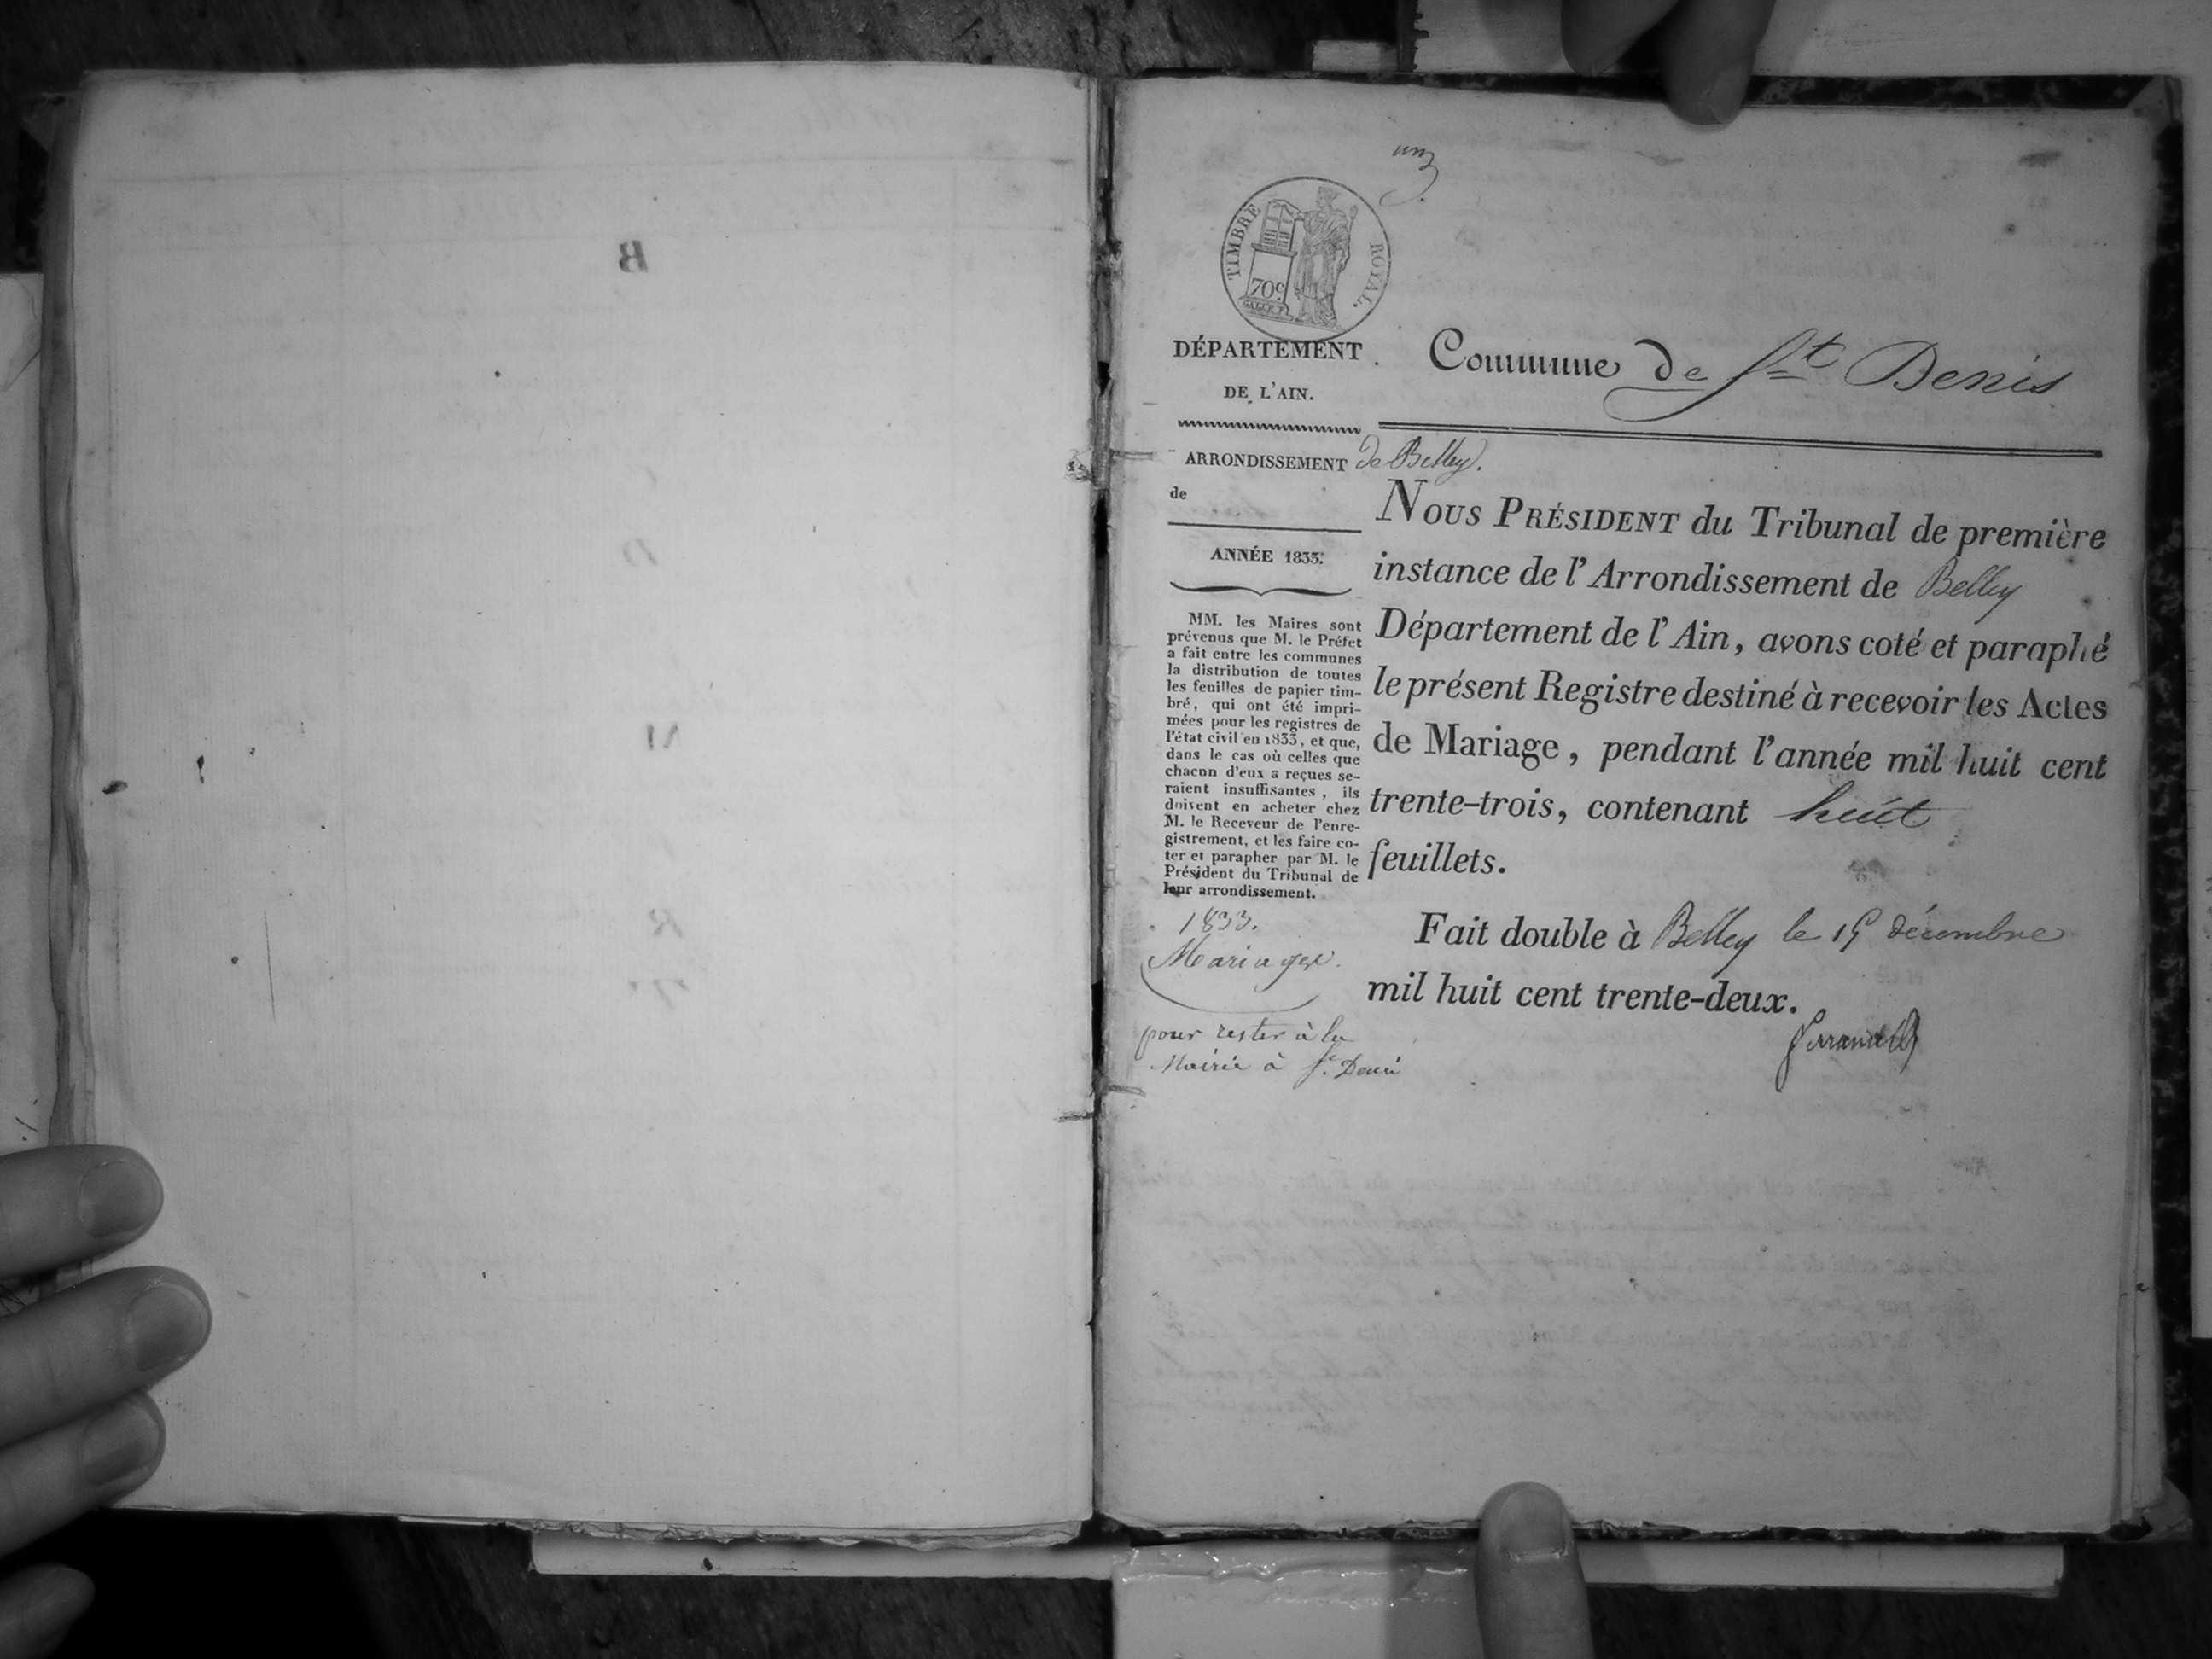 B
D
M
R
un
TIMBRE ROYAL.
70c
DÉPARTEMENT
DE L'AIN.
Commune de St Denis
ARRONDISSEMENT de Belley.
de
ANNÉE 1833.
MM. les Maires sont
prévenus que M. le Préfet
a fait entre les communes
la distribution de toutes
les feuilles de papier tim-
bré, qui ont été impri-
mées pour les registres de
l'état civil en 1833, et que,
dans le cas où celles que
chacun d'eux a reçues se-
raient insuffisantes, ils
doivent en acheter chez
M. le Receveur de l'enre-
gistrement, et les faire co-
ter et parapher par M. le
Président du Tribunal de
leur arrondissement.
1833.
Mariages.
pour rester à la
Mairie à St. Denis
NOUS PRÉSIDENT du Tribunal de première
instance de l'Arrondissement de Belley
Département de l'Ain, avons coté et paraphé
le présent Registre destiné à recevoir les Actes
de Mariage, pendant l'année mil huit cent
trente-trois, contenant huit
feuillets.
Fait double à Belley le 15 décembre
mil huit cent trente-deux.